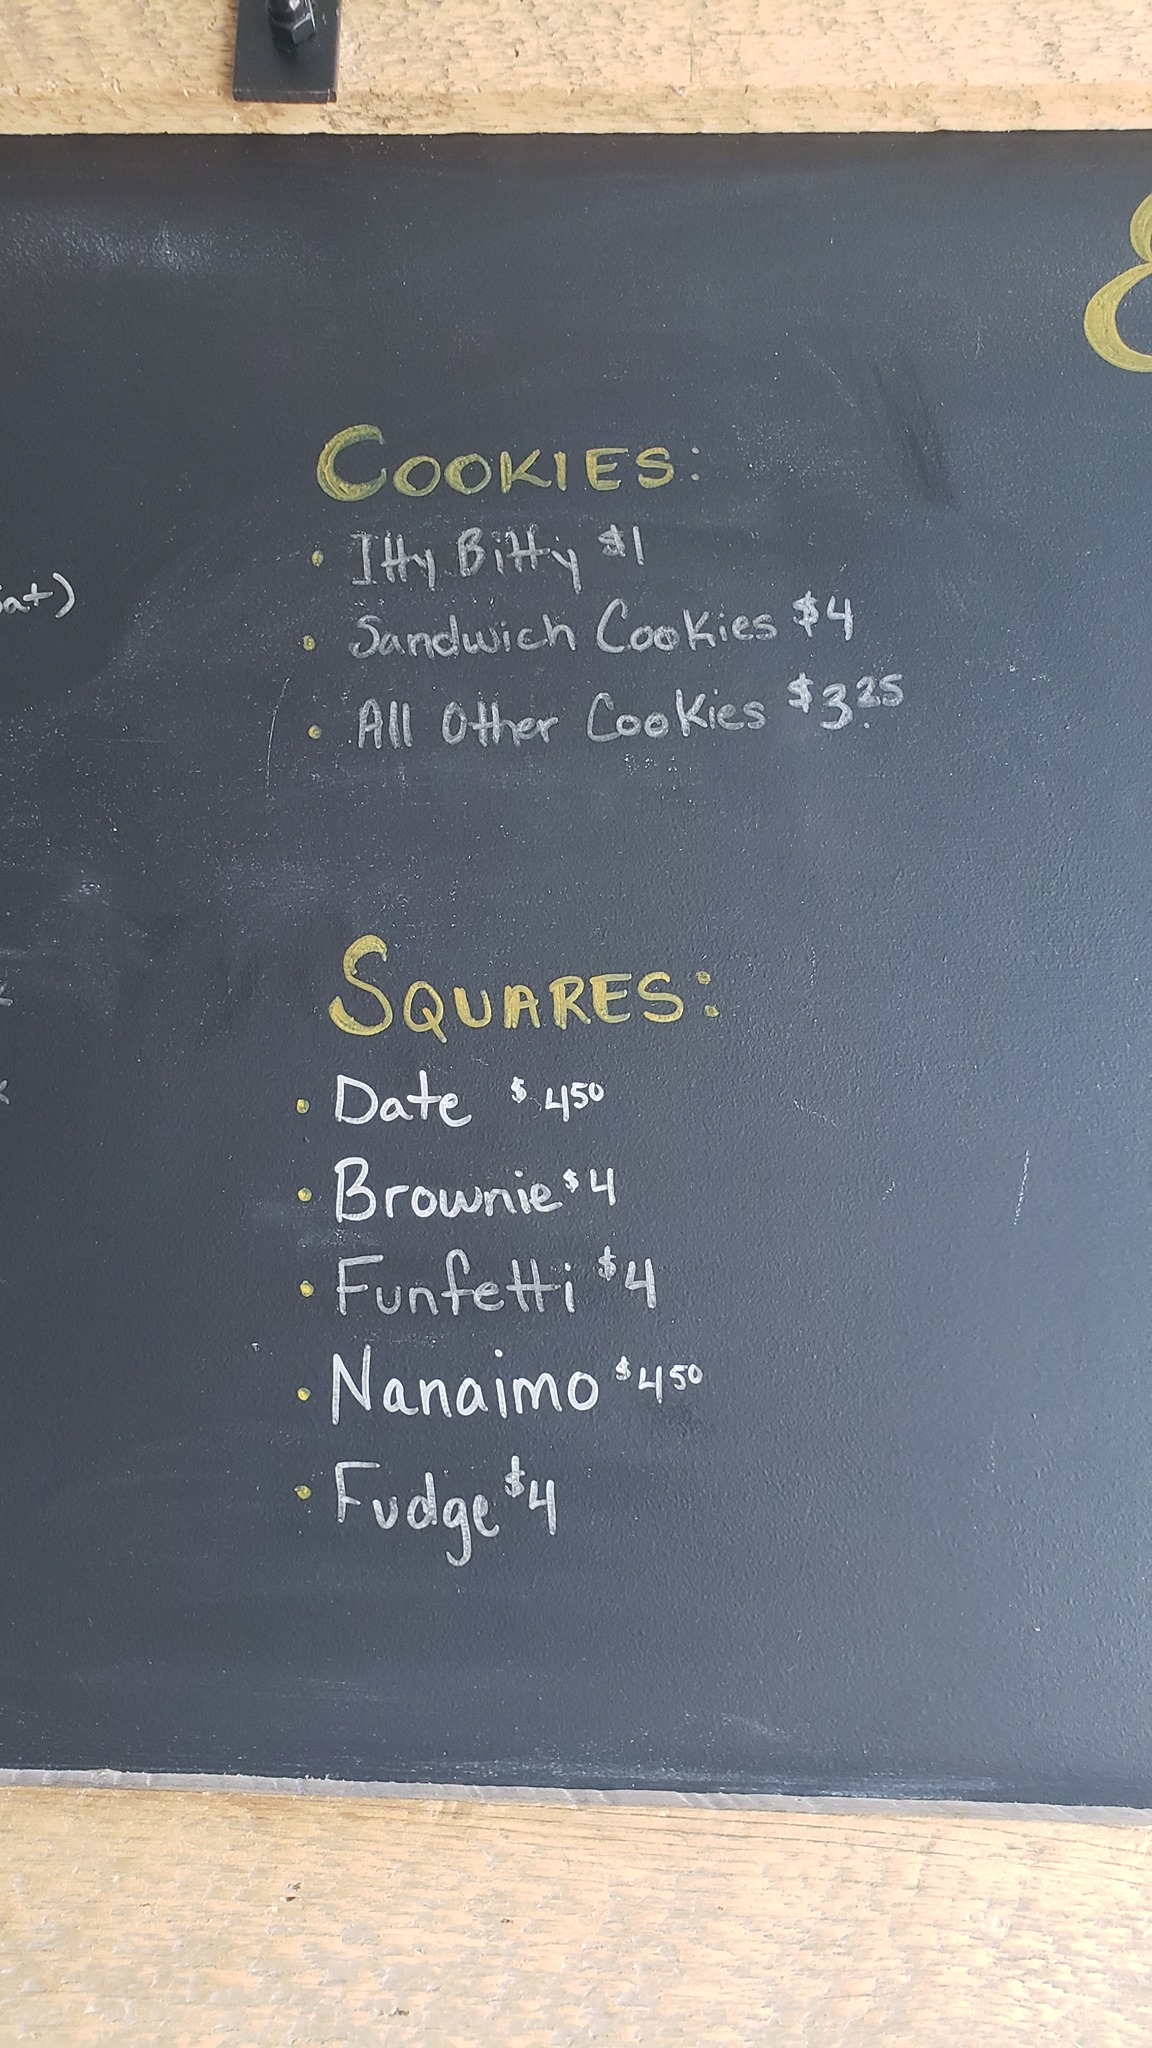 COOKIES:
• Itty Bitty $1
• Sandwich Cookies $4
• All Other Cookies $3.25
SQUARES:
• Date $450
• Brownie $4
• Funfetti $4
• Nanaimo $450
• Fudge $4